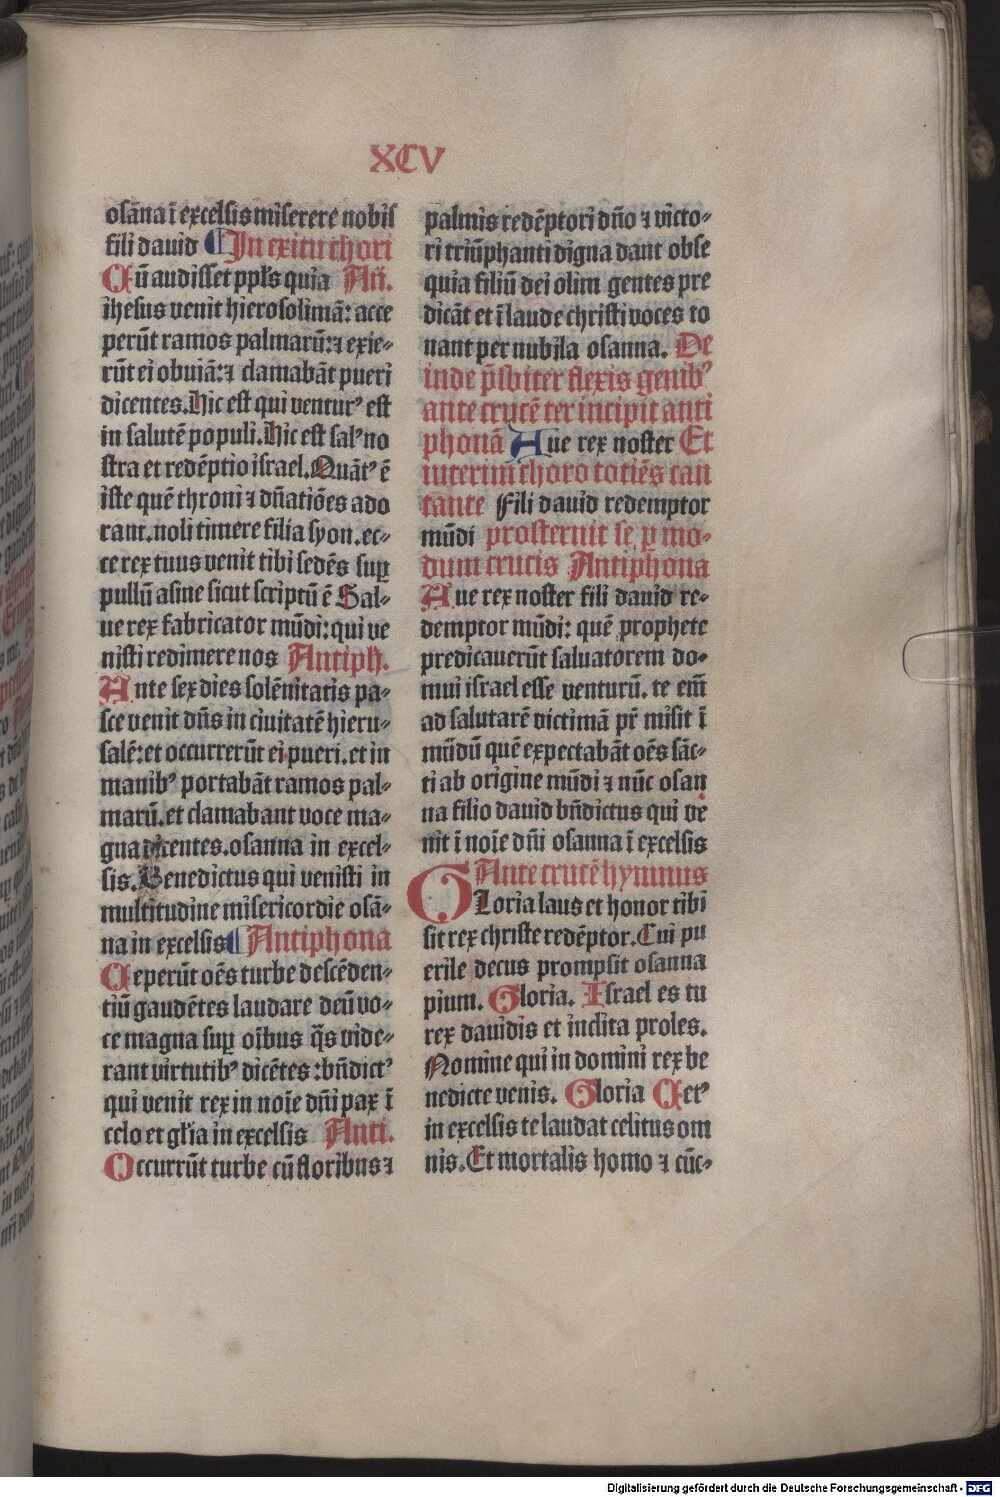 XCV
osāna ī excelsis miserere nobis
fili dauid In exitu chori
Cū audisset ppl's quia An̄.
ihesus venit hierosolimā: acce
perūt ramos palmarū: ⁊ exie⸗
rūt ei obuiā: ⁊ clamabāt pueri
dicentes. Hic est qui venturꝰ est
in salutē populi. Hic est salꝰ no
stra et redēptio israel. Quātꝰ ē
iste quē throni ⁊ dn̄atiōes ado
rant. noli timere filia syon. ec⸗
ce rex tuus venit tibi sedēs suꝑ
pullū asine sicut scriptū ē Sal⸗
ue rex fabricator mūdi: qui ve
nisti redimere nos Antiph.
Ante sex dies solēnitatis pa⸗
sce venit dn̄s in ciuitatē hieru⸗
salē: et occurrerūt ei pueri. et in
manibꝰ portabāt ramos pal⸗
marū. et clamabant voce ma⸗
gna dicentes. osanna in excel⸗
sis. Benedictus qui venisti in
multitudine misericordie osā⸗
na in excelsis Antiphona
Ceperūt oēs turbe descēden⸗
tiū gaudētes laudare deū vo⸗
ce magna suꝑ oībus q̄s vide⸗
rant virtutibꝰ dicētes: bn̄dictꝰ
qui venit rex in noīe dn̄i pax ī
celo et gl'ia in excelsis Anti.
Occurrūt turbe cū floribus ⁊
palmis redēptori dn̄o ⁊ victo⸗
ri triūphanti digna dant obse
quia filiū dei olim gentes pre
dicāt et ī laude christi voces to
nant per nubila osanna. De
inde p̄sbiter flexis genibꝰ
ante crucē ter incipit anti
phonā Aue rex noster Et
interim choro tociēs can
tante Fili dauid redemptor
mūdi prosternit se ꝑ mo⸗
dum crucis Antiphona
Aue rex noster fili dauid re⸗
demptor mūdi: quē prophete
predicauerūt saluatorem do⸗
mui israel esse venturū. te em̄
ad salutarē victimā pr̄ misit ī
mūdū quē expectabāt oēs sāc⸗
ti ab origine mūdi ⁊ nūc osan
na filio dauid bn̄dictus qui ve
nit ī noīe dn̄i osanna ī excelsis
Ante crucē hymnus
Gloria laus et honor tibi
sit rex christe redēptor. Cui pu
erile decus prompsit osanna
pium. Gloria. Israel es tu
rex dauidis et inclita proles.
Nomine qui in domini rex be
nedicte venis. Gloria Cetꝰ
in excelsis te laudat celitus om
nis. Et mortalis homo ⁊ cūc⸗
Digitalisierung gefördert durch die Deutsche Forschungsgemeinschaft - DFG